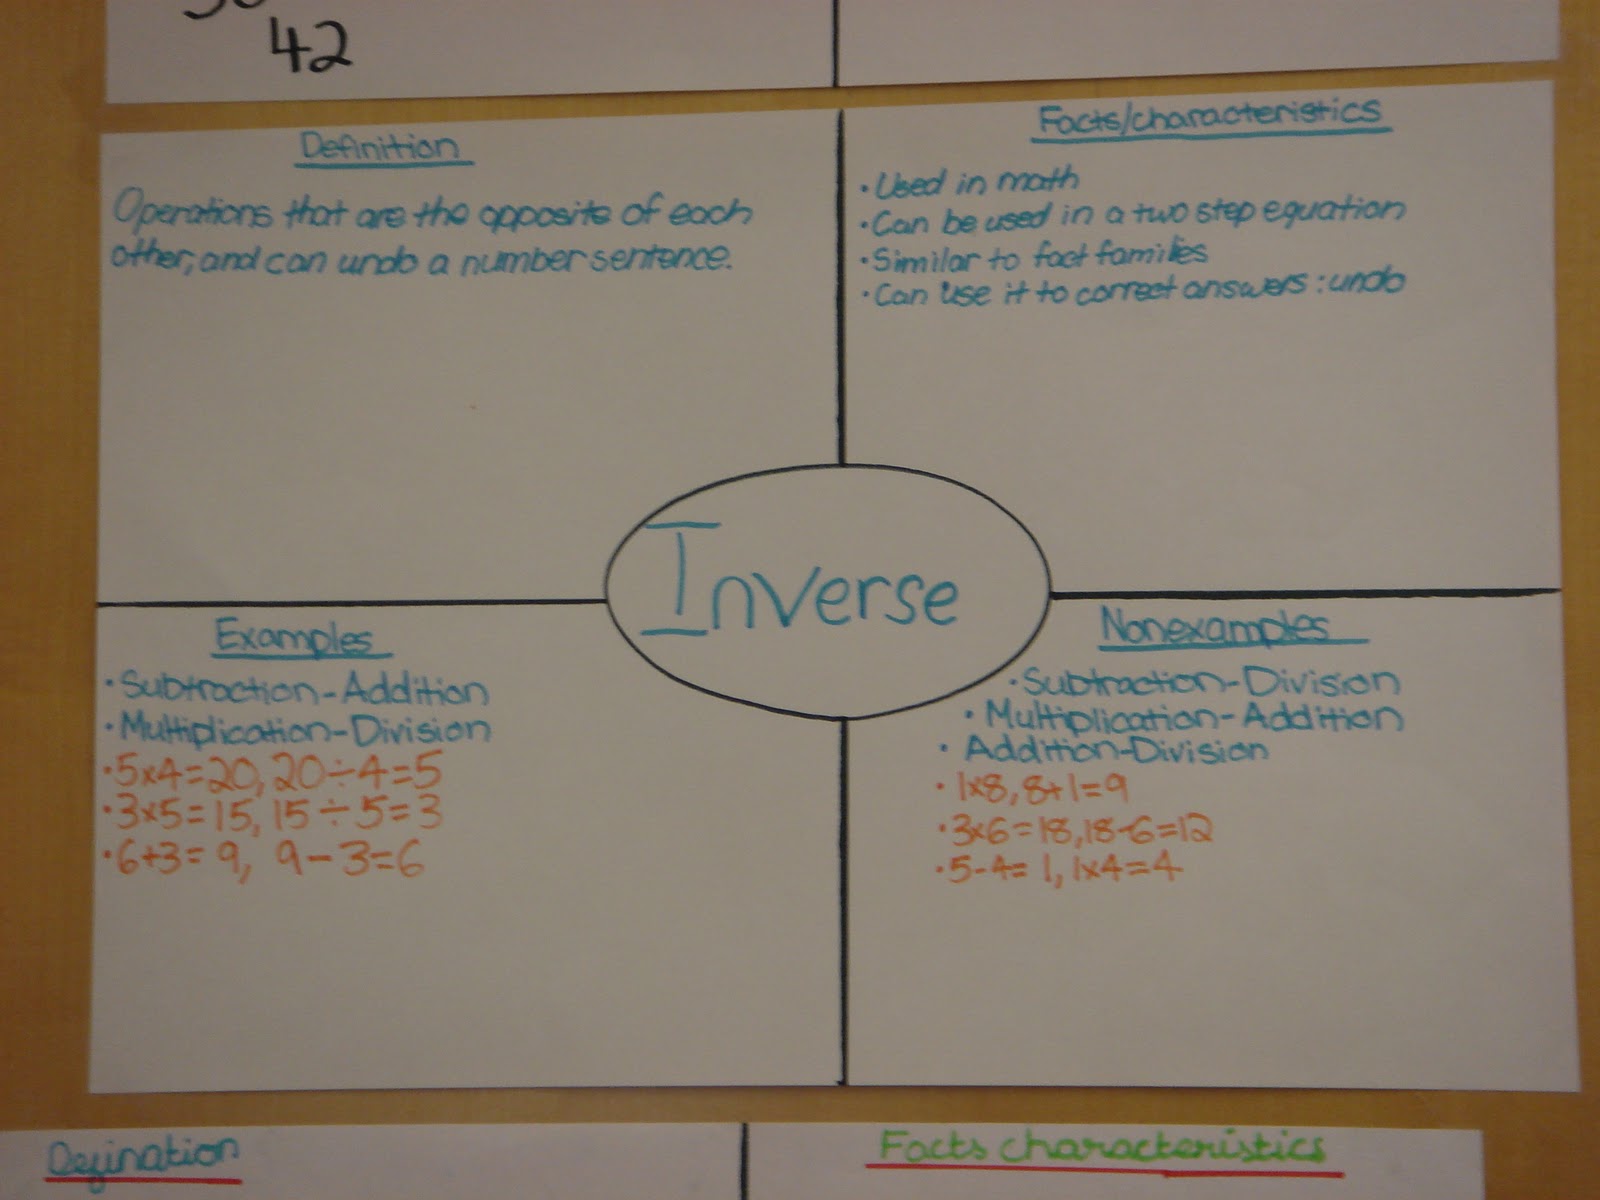 42
Definition
Operations that are the opposite of each
other, and can undo a number sentence.
Facts/characteristics
• Used in math
• Can be used in a two step equation
• Similar to fact families
• Can use it to correct answers: undo
Inverse
Examples
• Subtraction-Addition
• Multiplication-Division
• 5x4=20, 20÷4=5
• 3x5=15, 15÷5=3
• 6+3=9, 9-3=6
Nonexamples
• Subtraction-Division
• Multiplication-Addition
• Addition-Division
• 1x8, 8+1=9
• 3x6=18, 18-6=12
• 5-4=1, 1x4=4
Defination
Facts characteristics